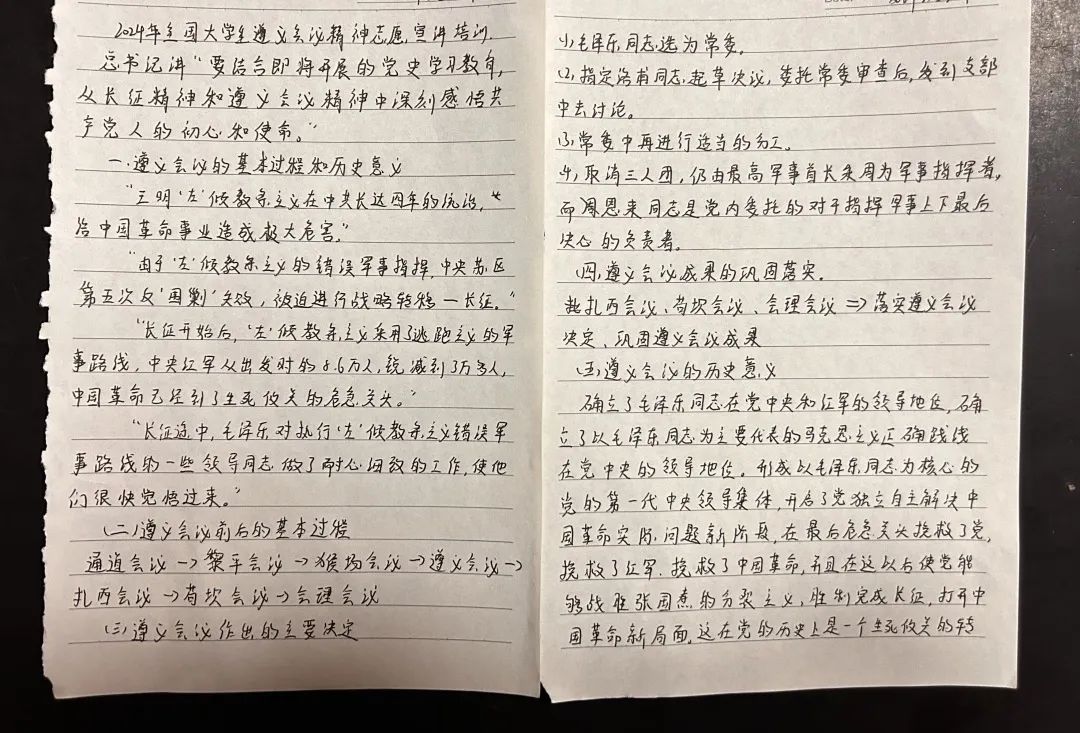 2024年全国大学生遵义会议精神志愿宣讲培训.
总书记讲"要结合即将开展的党史学习教育,
从长征精神和遵义会议精神中深刻感悟共
产党人的初心和使命。"
一.遵义会议的基本过程和历史意义
"王明'左'倾教条主义在中共长达四年的统治,
给中国革命事业造成极大危害."
"由于'左'倾教条主义的错误军事指挥,中央苏区
第五次反'围剿'失败,被迫进行战略转移一长征."
"长征开始后,'左'倾教条主义采用了逃跑主义的军
事路线,中央红军从出发时的8.6万人,锐减到3万多人,
中国革命已经到了生死攸关的危急关头。"
"长征途中,毛泽东对执行'左'倾教条主义错误军
事路线的一些领导同志做了耐心细致的工作,使他
们很快觉悟过来。"
(二)遵义会议前后的基本过程
通道会议→黎平会议→猴场会议→遵义会议→
扎西会议→苟坝会议→会理会议
(三)遵义会议作出的主要决定
(1)毛泽东同志选为常委.
(2)指定洛甫同志起草决议,委托常委审查后,发到支部
中去讨论。
(3)常委中再进行适当的分工.
(4)取消三人团,仍由最高军事首长朱周为军事指挥者,
而周恩来同志是党内委托的对于指挥军事上下最后
决心的负责者.
(四)遵义会议成果的巩固落实.
扎西会议、苟坝会议、会理会议⇒落实遵义会议
决定、巩固遵义会议成果
(五)遵义会议的历史意义
确立了毛泽东同志在党中央和红军的领导地位,确
立了以毛泽东同志为主要代表的马克思主义正确路线
在党中央的领导地位。形成以毛泽东同志为核心的
党的第一代中央领导集体,开启了党独立自主解决中
国革命实际问题新阶段,在最后危急关头挽救了党,
挽救了红军.挽救了中国革命,并且在这以后使党能
够战胜张国焘的分裂主义,胜利完成长征,打开中
国革命新局面.这在党的历史上是一个生死攸关的转